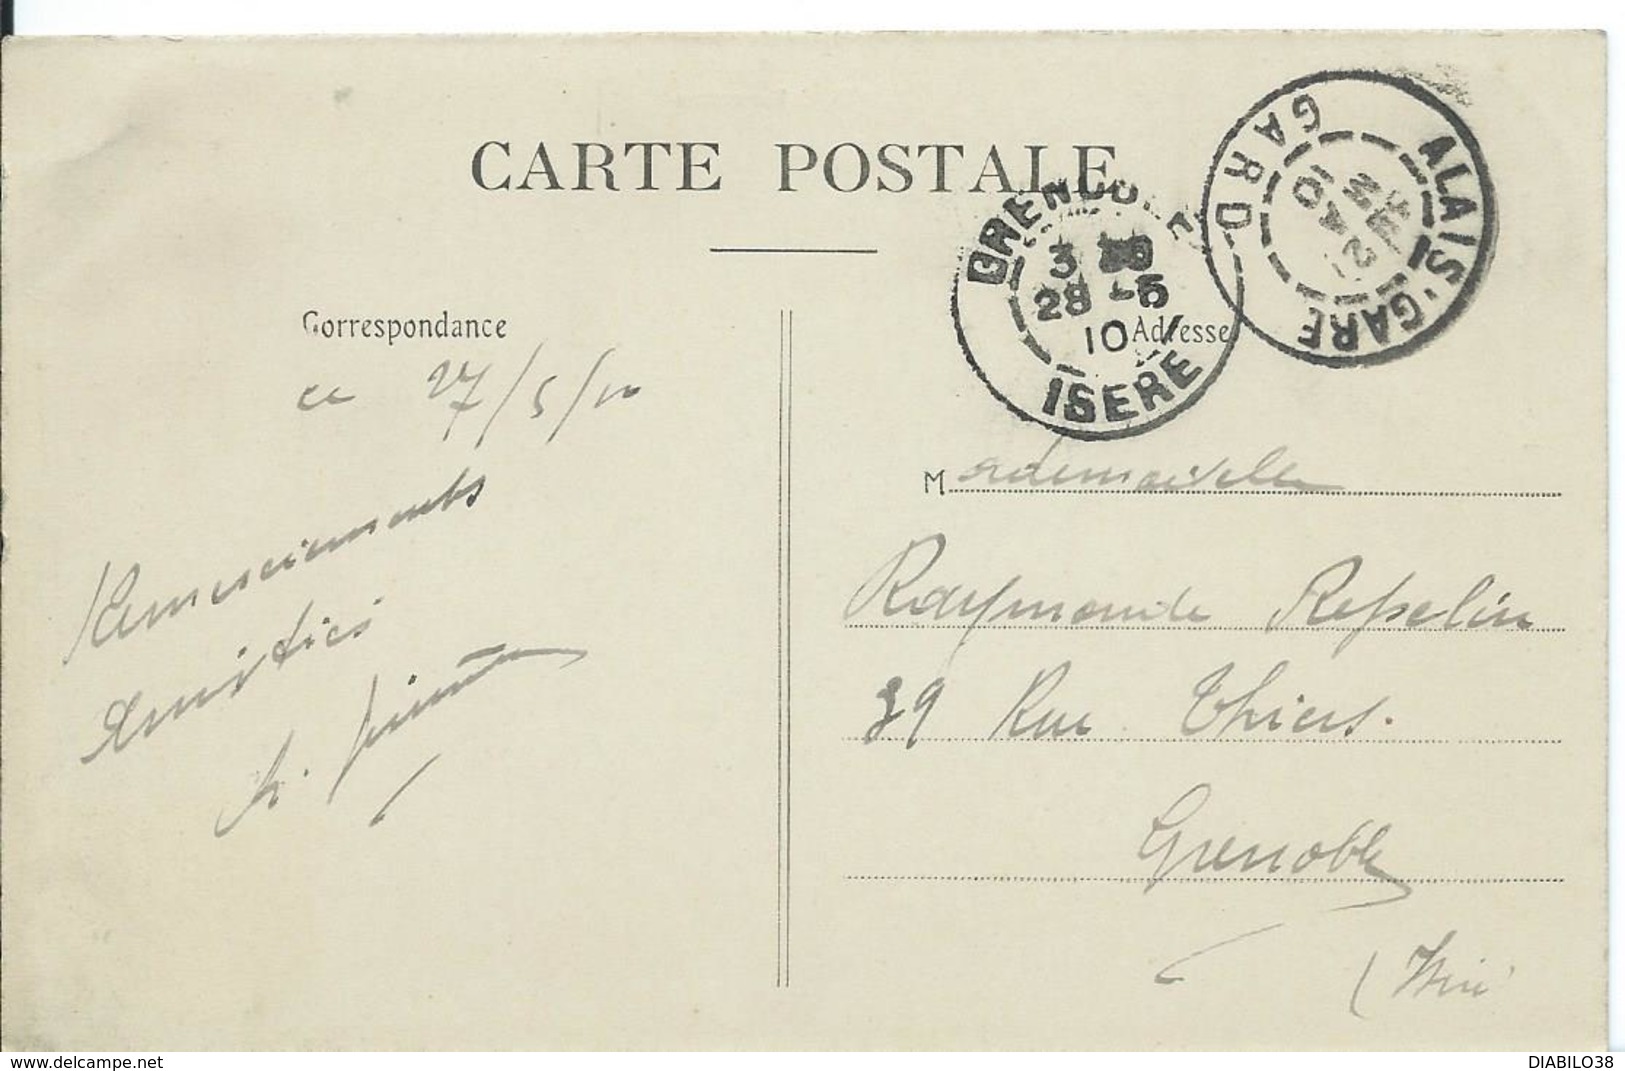 CARTE POSTALE
ALAIS-GARE
GARD
GRENOBLE
3
28 -5
10
ISERE
Correspondance
Adresse
ce 27/5/10
Remerciements
Amitiés
Mademoiselle
Raymonde Repelin
39 Rue Thiers.
Grenoble
(Isère
https://www.delcampe.net
DIABILO38